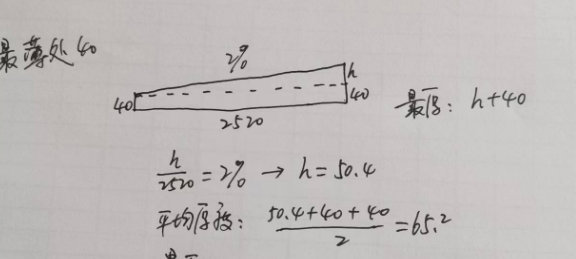 最薄处40
2%
h
40
40
2520
最厚: h+40
h/2520 = 2% → h = 50.4
平均厚度: (50.4+40+40)/2 = 65.2